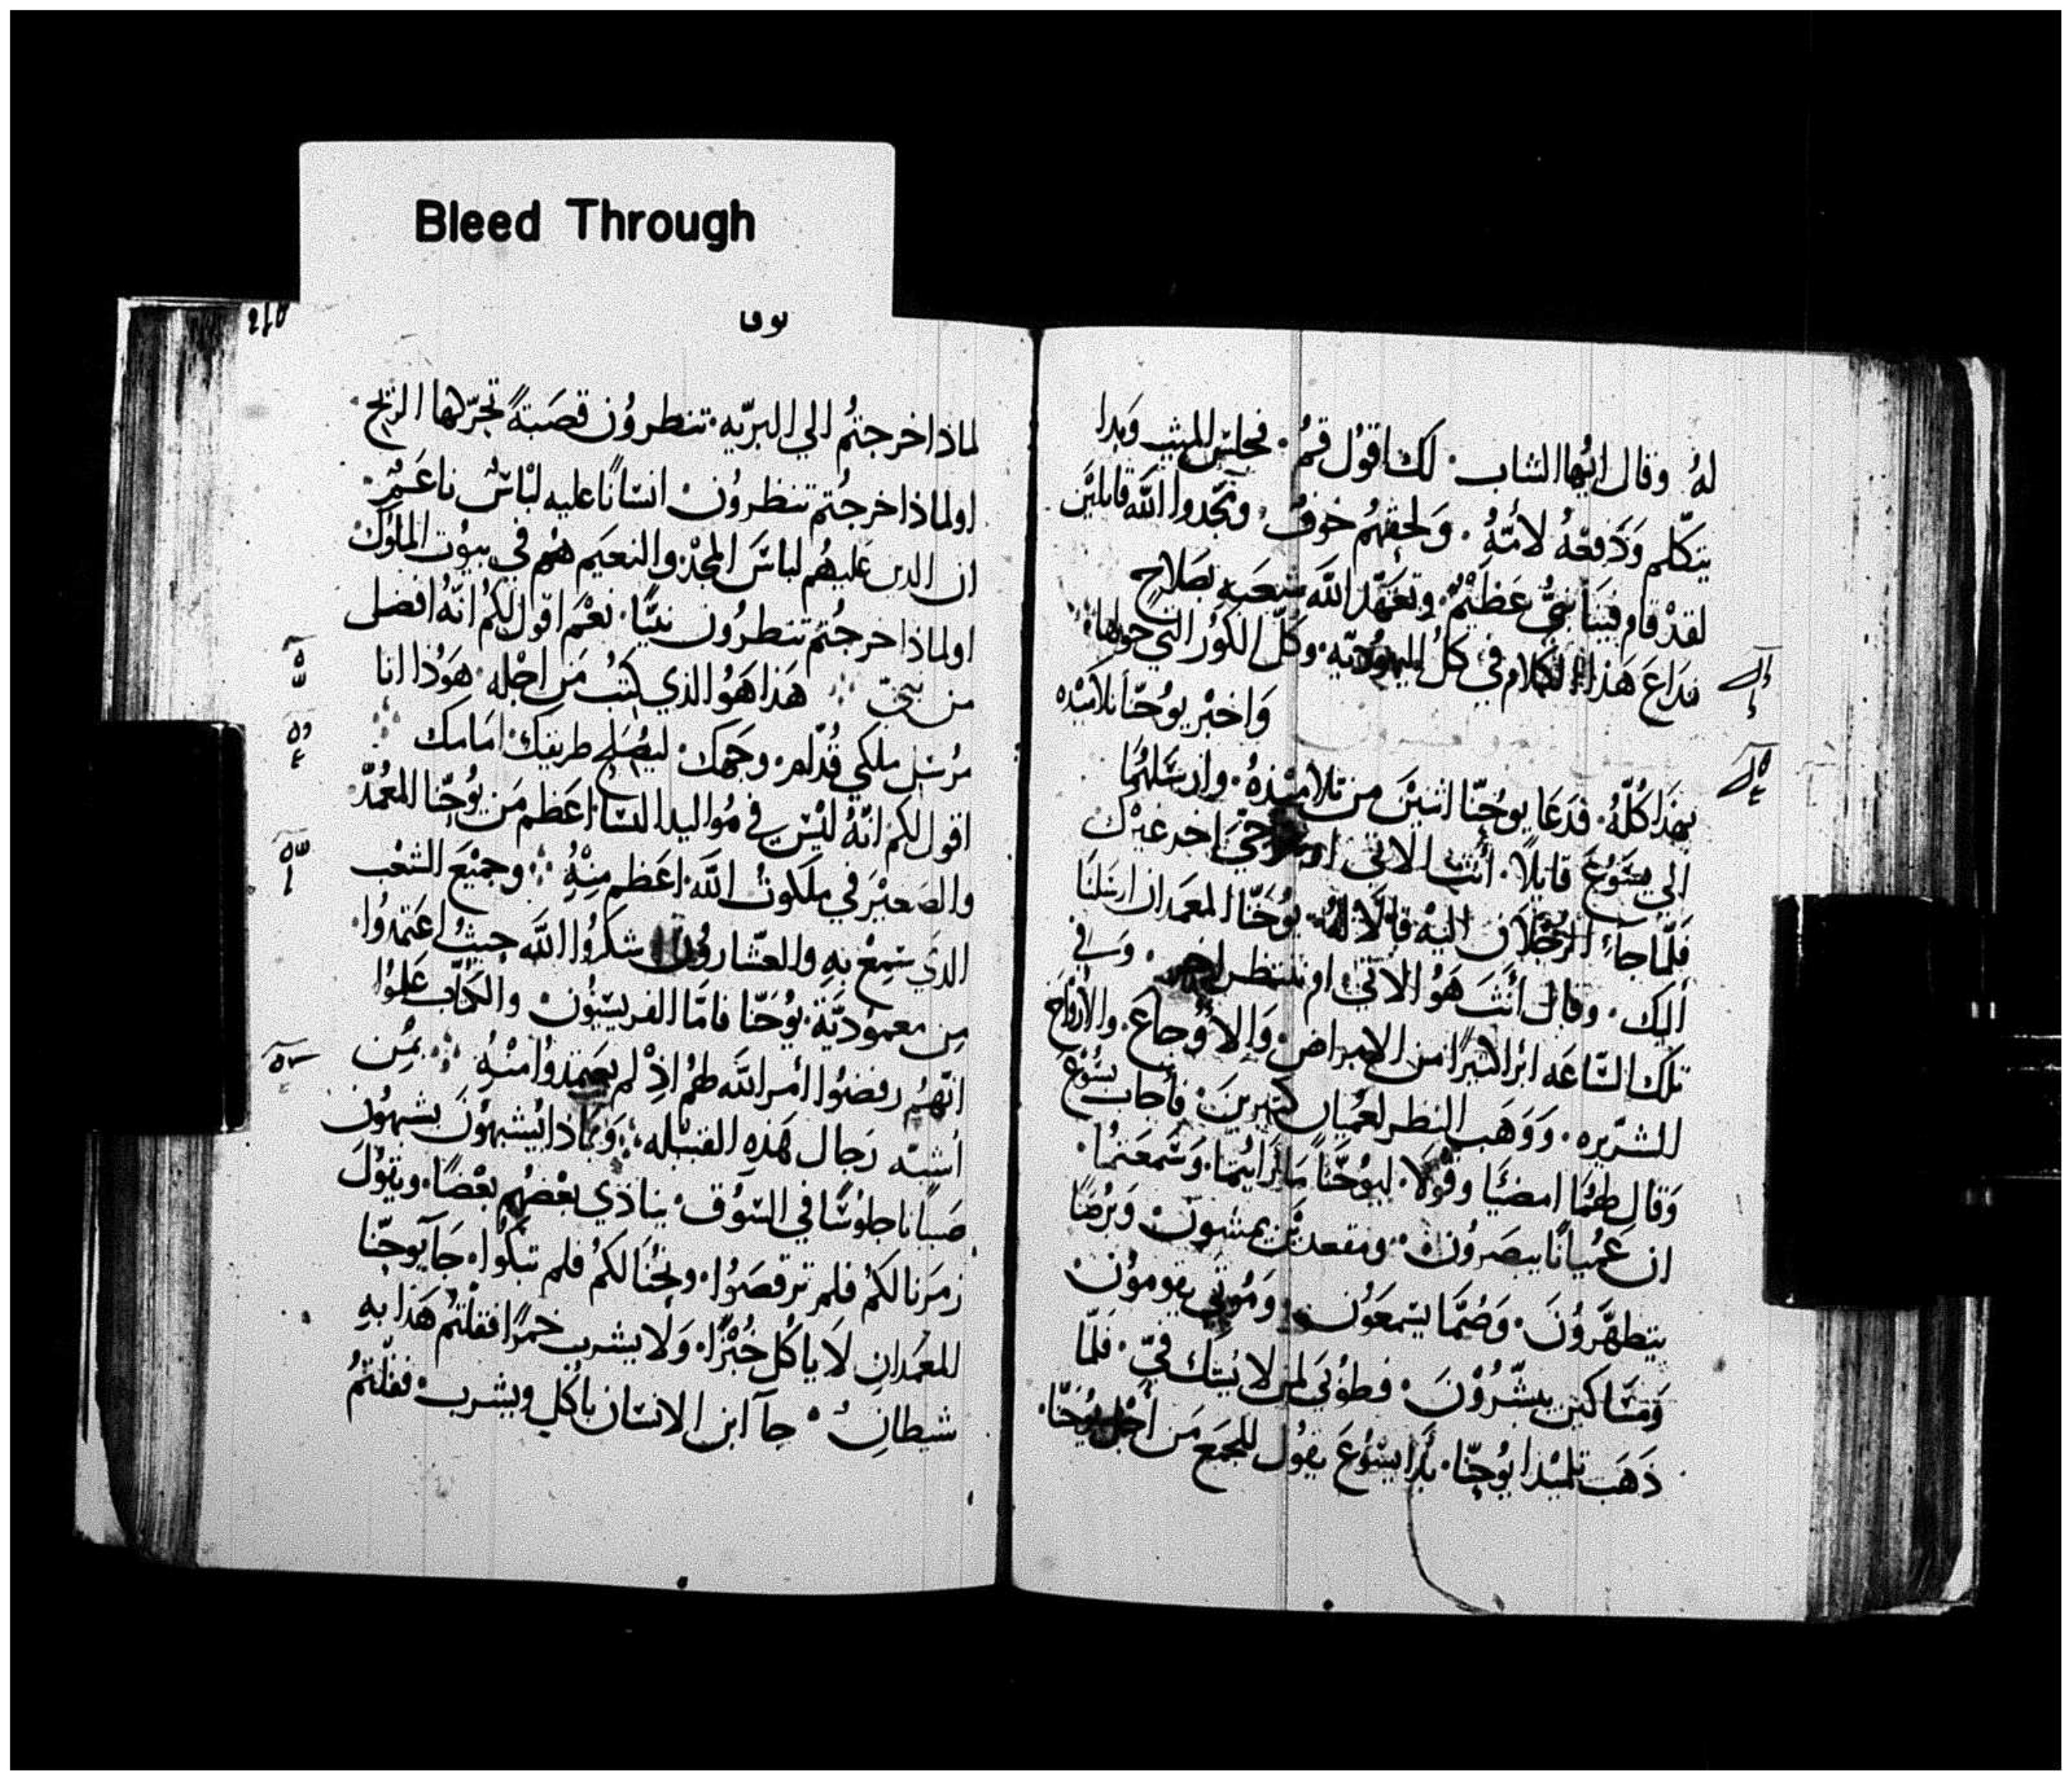 Bleed Through
لهُ وقال ايُّها الشاب · لك اقوُل قمُ · فجلسَ الميت وَبدا
يتكلّم وَدَفعَهُ لأمّهُ · وَلحقهُم خوفٌ · ومَجّدوا اللّه قايليَن
لقدْ قام فينَا نبيٌّ عَظيْمٌ · وتعَهّد اللّهَ شعَبهِ بصَلاحٍ
فذاعَ هَذا الكلام في كلُ اليهوُديّه · وكلّ الكوُر التي حولها
وَاخبْر يوُحَنّا تلاميْذه
بهَذا كلّهُ · فدَعَا يوحُنّا اثنينَ من تلاميْذهُ · وارسَلهُما
الي يسَوُعَ قايلاً · أنتَ الاتي ام نترجّيَ اخر غيرْك
فلّما جآءَ الرجُلان اليْه قالَا لهُ · يوُحَنّا المعمَدان ارسَلنَا
اليك · وقال أنتَ هَوُ الاتيْ ام ننتظر اخر · وَفي
تلكَ السّاعَه ابرا كثيرًا من الامراض · وَالاوُجاع · والارْوَاح
الشرّيره · وَوَهَب النظر لعُميان كثيرينَ · فأجاب يسُوعَ
وَقال لهُمَا امضيَا وقوُلَا ليوُحّنَا مَا رَايتُما · وَسَمعَتمُا ·
ان عَميانًا يبصَروُن · ومقعدينَ يمشون · وَبرُصًا
يتطهّروُنَ · وَصُمًّا يسَمعَوُن · وَموُتي يقوموُن ·
وَمسَاكين يبشّروُنَ · فطوُبَي لمن لا يشك فيّ · فلّما
ذهَب تلميْذا يوُحنّا · بَدا يسَوُعَ يقوُل للجَمع مَن أجْل يوُحَنّا ·
لوقا
لماذا خرجتمُ الي البرّيّه · تنظروُن قصَبةً تحرّكها الريح
اولماذا خرجُتم تنظروُن · انسَانًا عليه لبْاسٌ ناعَمٌ ·
ان الذين عَليهُم لباسَ المجدْ · والنعيَم هُم في بيوُت الملوُك
اولماذا خرجُتم تنظرُون نبيًّا · نعْم اقوُل لكمُ انّهُ افضل
من نبيّ · هَذا هَوُ الذي كتبُ مَن اجْله · هَوُذا انا
مرُسَل ملكي قدّام · وجَهك · ليصُلح طريقك · امَامك
اقول لكم انّهُ ليْسَ في مُواليد النسَا اعَظم مَن يوُحنّا المعُمدّ
والصَغيْرَ في ملكوتُ اللّه اعَظم منِهُ · وجميْعَ الشعْب
الذي سَمِعْ بهِ والعشّاروُن شكرُوا اللّه حيثُ اعَتمدُوا ·
مِن معموُديّة يوُحَنّا فامّا الفريسَيوُن · والكتّاب علموُا
انّهمُ رفضوُا أمر اللّه لهمُ اذِ لم يعَتمذوُا منْهُ · بمُن
اُشبّه رَجال هَذهِ القبيْله · وَبماذا يُشبهوُنَ يشبهوُن
صَبيانًا جلوسًا في السّوُق · يناذي بعْضهُم بعْضًا · ويقوُلَ
زمَرنا لكمُ فلم ترقصَوُا · ونُحنَا لكمُ فلم تبكوا · جَآ يوحنّا
المعَمَدانِ لَا يا كُل خُبْزًا · وَلا يشرب خمرًا فقلتمُ هَذا بهِ
شيطانٌ · جآ ابن الانسَان ياكل ويشرب · فقلتمُ